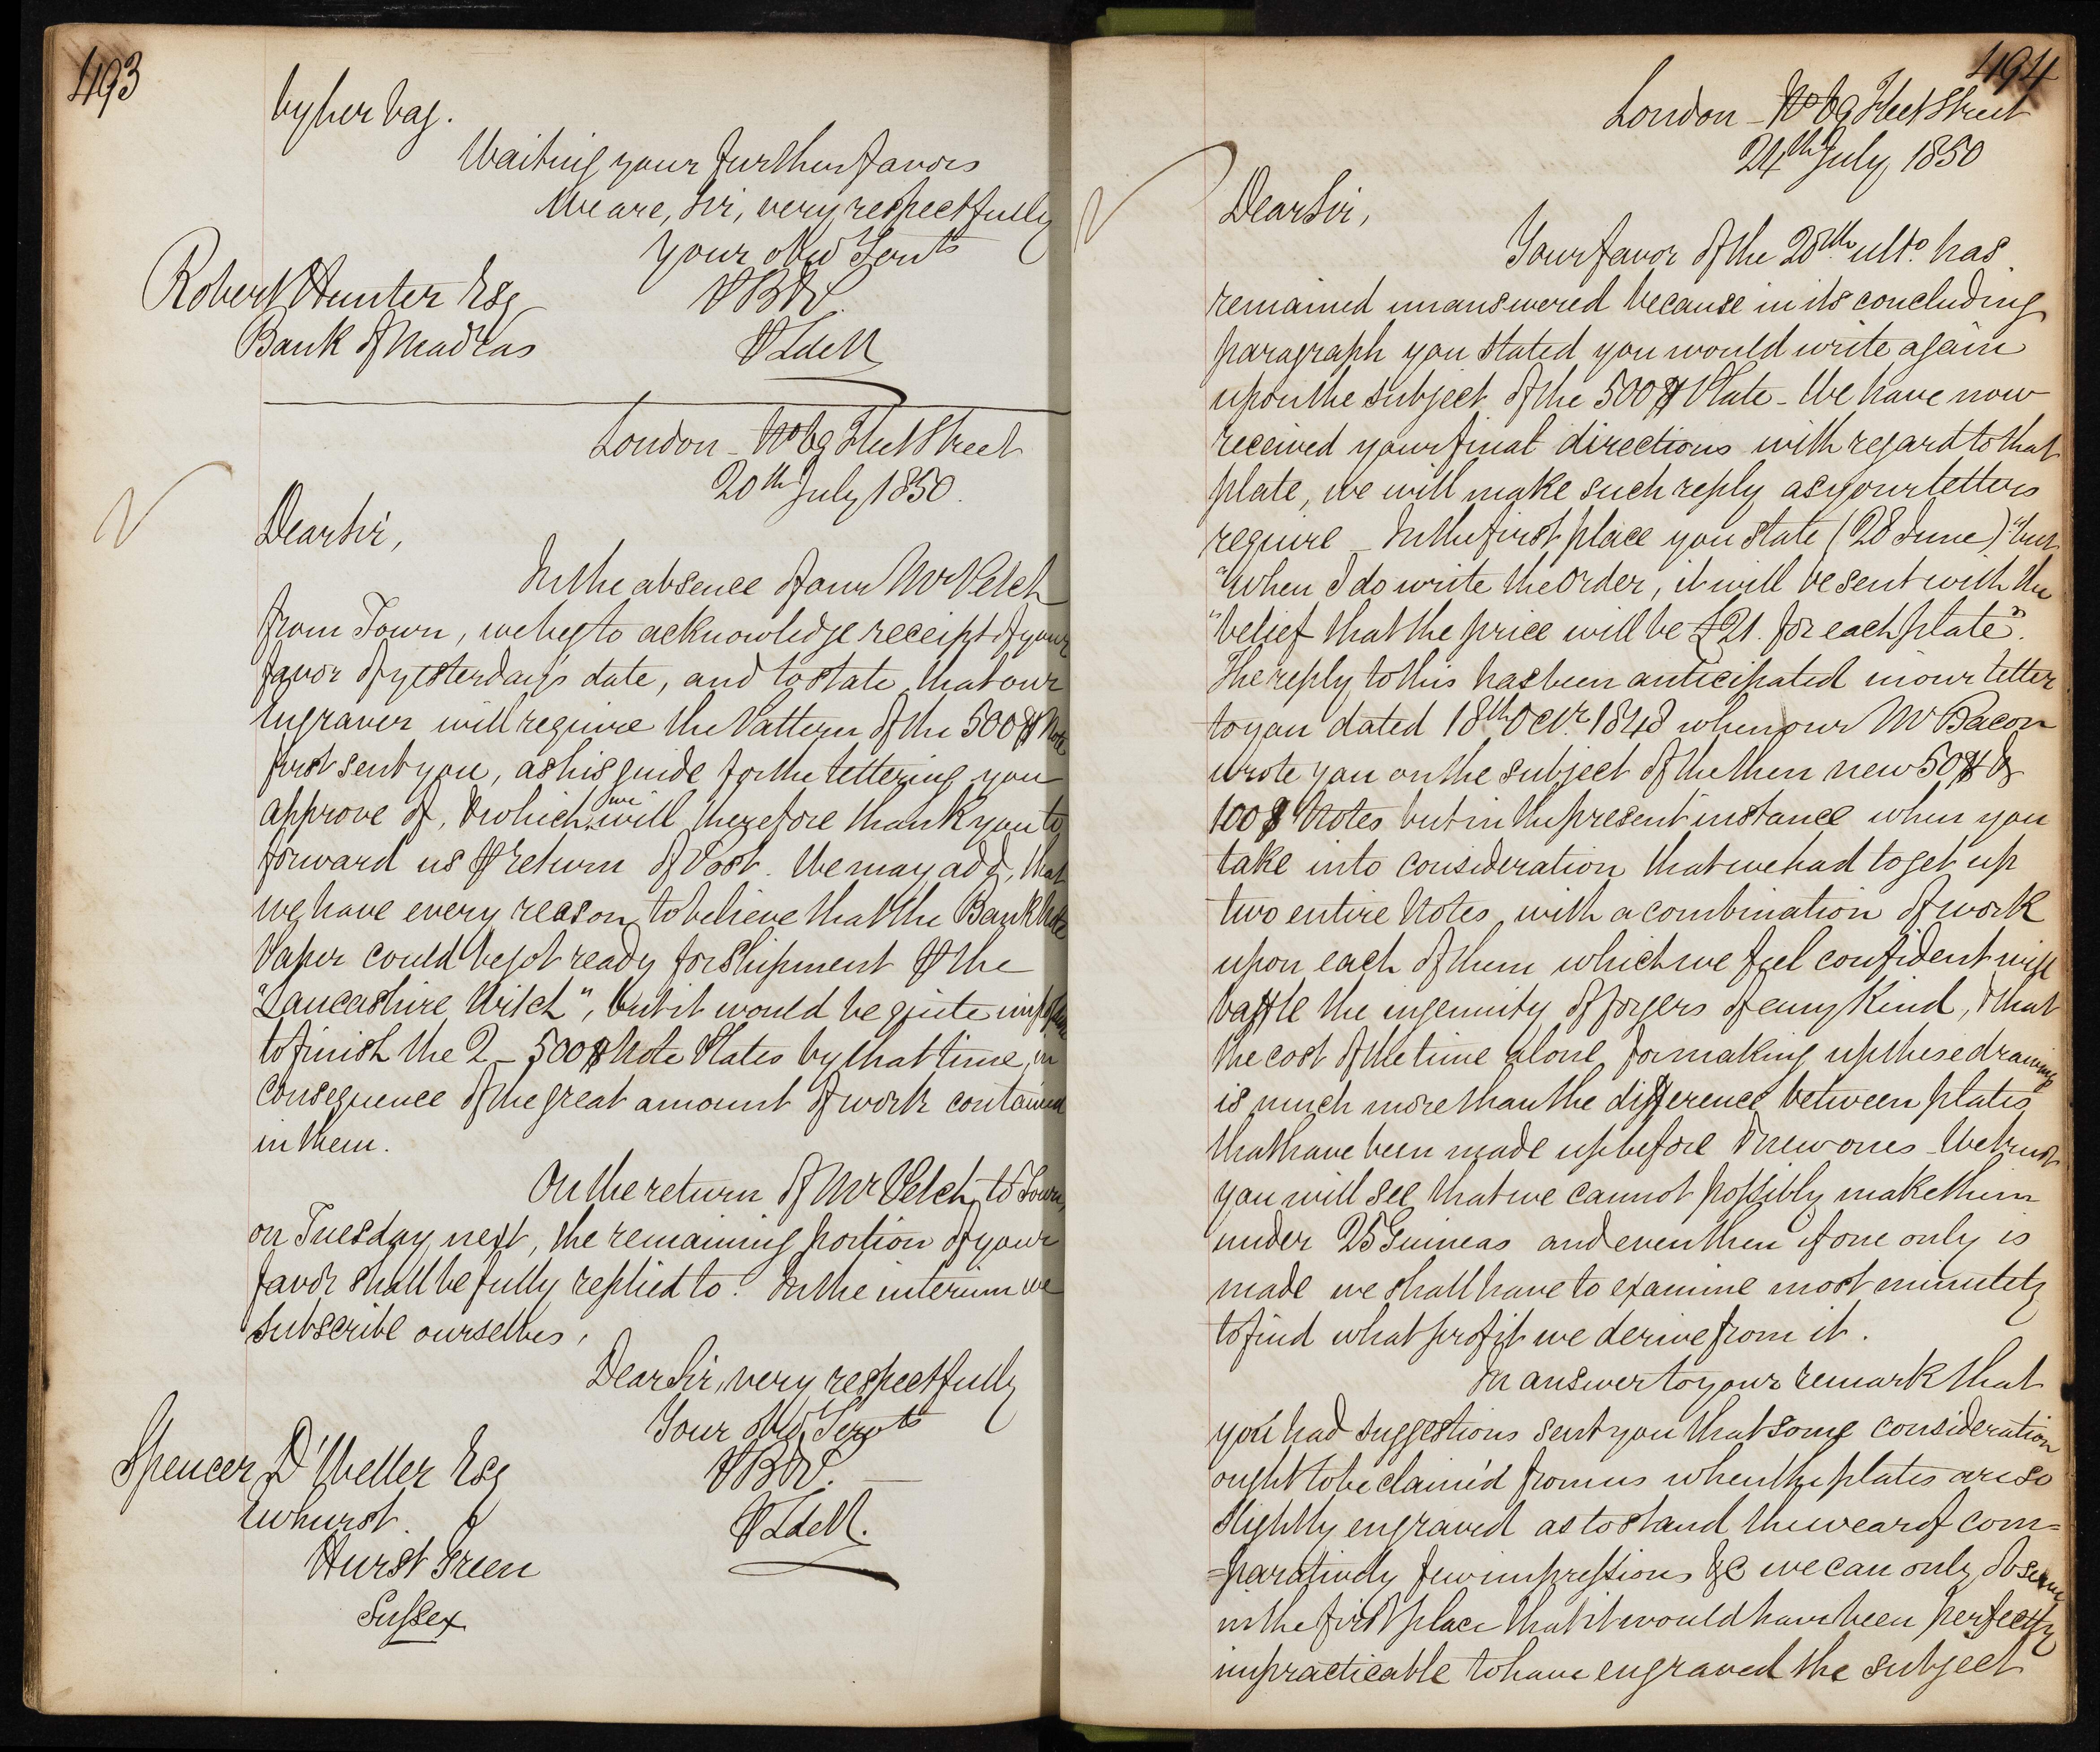 493
by her bag.
Waiting your further favors
We are, Sir, very respectfully
Your Obed Servts
P B & P.
P L de M
Robert Hunter Esq
Bank of Madras
London - No 69 Fleet Street
20th July 1850.
Dear Sir,
In the absence of our Mr Petch
from Town, we beg to acknowledge receipt of your
favor of yesterday's date, and to state that our
Engraver will require the Pattern of the 500 $ Note
first sent you, as his guide for the lettering you
approve of, & which we will therefore thank you to
forward us P return of Post. We may add, that
we have every reason to believe that the Bank Note
Paper could be got ready for shipment P the
"Lancashire Witch", but it would be quite impossible
to finish the 2 - 500 $ Note Plates by that time, in
consequence of the great amount of work contained
in them.
On the return of Mr Petch to Town,
on Tuesday next, the remaining portion of your
favor shall be fully replied to. In the interim we
subscribe ourselves,
Dear Sir, very respectfully
Your Obed Servts
P B & P.
P L de M.
Spencer D' Weller Esq
Ewhurst.
Hurst Green
Sussex
494
London - No 69 Fleet Street
24th July 1850
Dear Sir,
Your favor of the 28th ulto. has
remained unanswered because in its concluding
paragraph you stated you would write again
upon the subject of the 500 $ Plate - We have now
received your final directions with regard to that
plate, we will make such reply as your letters
require - In the first place you state (28 June) "but
"when I do write the order, it will be sent with the
"belief that the price will be £21. for each plate".
The reply to this has been anticipated in our letter
to you dated 18th Octr. 1848 when our Mr Bacon
wrote you on the subject of the then new 50 $ &
100 $ Notes but in the present instance when you
take into consideration that we had to get up
two entire Notes with a combination of work
upon each of them which we feel confident will
baffle the ingenuity of forgers of any Kind, & that
the cost of the time alone for making up these drawings
is much more than the difference between plates
that have been made up before & new ones - We trust
you will see that we cannot possibly make them
under 25 Guineas and even then if one only is
made we shall have to examine most minutely
to find what profit we derive from it.
In answer to your remark that
you had suggestions sent you that some consideration
ought to be claim'd from us when the plates are so
slightly engraved as to stand the wear of com=
=paratively few impressions &c we can only observe
in the first place that it would have been perfectly
impracticable to have engraved the subject